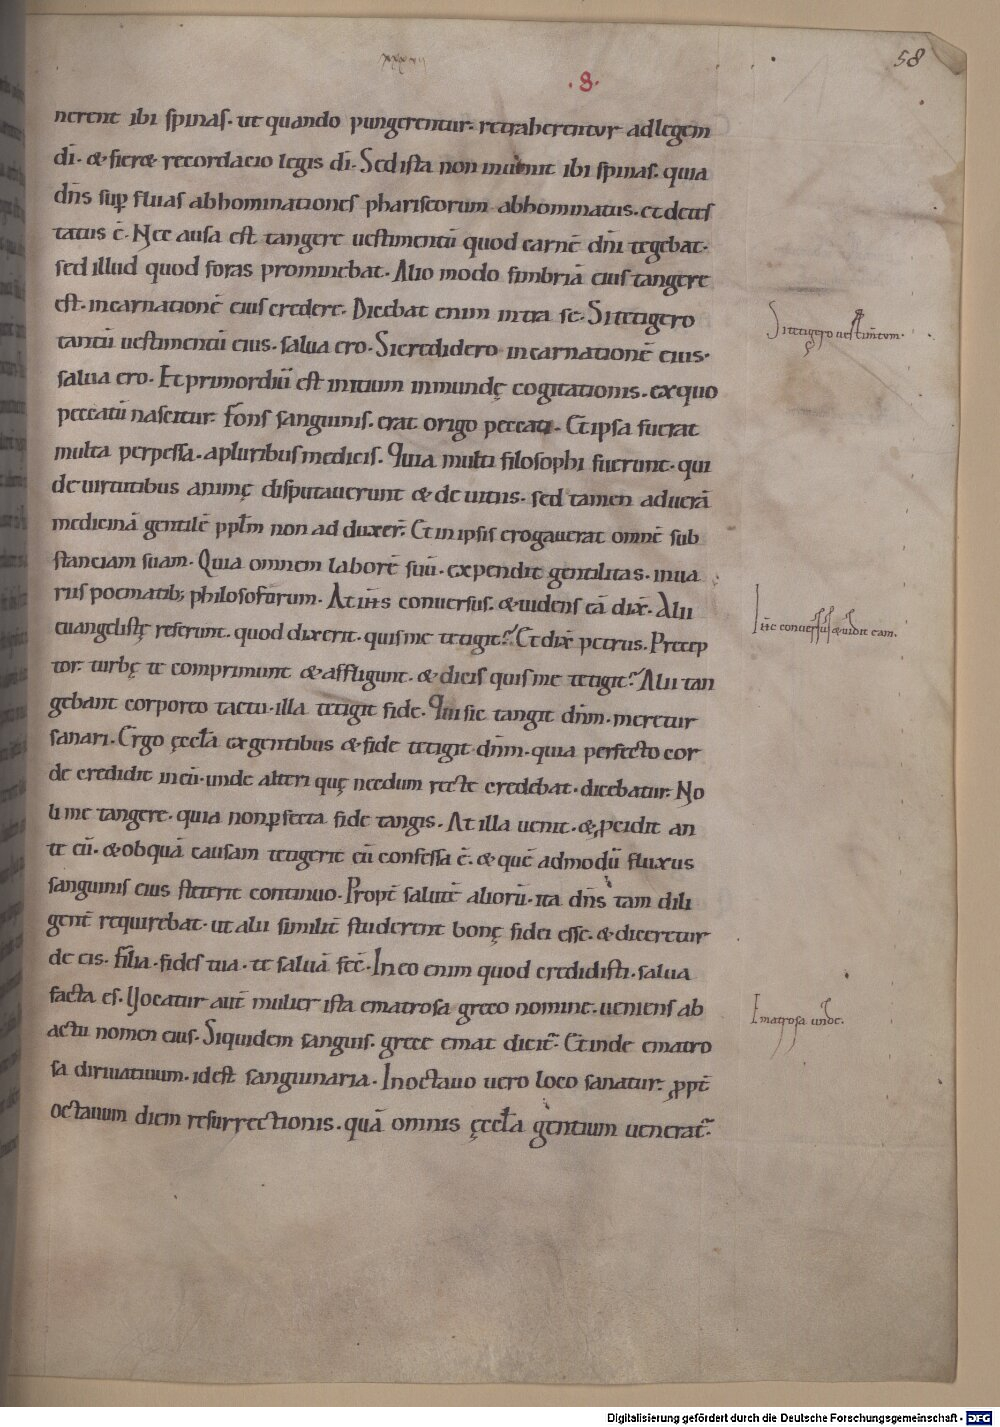 xxxvii
58
.8.
nerent ibi spinas. ut quando pungerentur. retraherentur ad legem
dī. & fieret recordacio legis dī. Sed ista non inuenit ibi spinas. quia
dn̄s sup fluas abhominationes phariseorum abhominatus. et detes
tatus ē. Nec ausa est tangere uestimentū quod carnē dn̄i tegebat.
sed illud quod foras prominebat. Alio modo fimbriā eius tangere
est. incarnationē eius credere. Dicebat enim intra se. Si tetigero
tantū uestimentū eius. salua ero. Si credidero incarnationē eius.
salua ero. Et primordiū est initium inmundę cogitationis. ex quo
peccatū nascitur. Fons sanguinis. erat origo peccati. Et ipsa fuerat
multa perpessa. a pluribus medicis. Quia multi filosophi fuerunt. qui
de uirtutibus animę disputauerunt & de uitiis. sed tamen ad uerā
medicinā gentilē pplm̄ non ad duxer̄. Et in ipsis erogauerat omnē sub
stanciam suam. Quia omnem laborē suū. expendit gentilitas. in ua
riis poematib; philosoforum. At ih̄s conuersus. & uidens eā dix̄. Alii
euangelistę referunt. quod dixerit. quis me tetigit? Et dix̄ petrus. Precep
tor. turbę te comprimunt & affligunt. & dicis quis me tetigit? Alii tan
gebant corporeo tactu. illa tetigit fide. Qui sic tangit dn̄m. meretur
sanari. Ergo ęccl̄a ex gentibus & fide tetigit dn̄m. quia perfecto cor
de credidit in eū. unde alteri quę necdum recte credebat. dicebatur. No
li me tangere. quia non ꝑfecta fide tangis. At illa uenit. & ꝓcidit an
te eū. & ob quā causam tetigerit eū confessa ē. & quē admodū fluxus
sanguinis eius steterit continuo. Propt̄ salutē aliorū. ita dn̄s tam dili
gent̄ requirebat. ut alii similit̄ studerent bonę fidei esse. & diceretur
de eis. Filia. fides tua. te saluā fec̄. In eo enim quod credidisti. salua
facta es. Vocatur aut̄ mulier ista ematrosa greco nomine. ueniens ab
actu nomen eius. Siquidem sanguis. grece emat dicit̄. Et inde ematro
sa diriuatiuum. id est sanguinaria. In octauo uero loco sanatur. ꝓpt̄
octauum diem resurrectionis. quā omnis ęccl̄a gentium uenerat̄.
Si tetigero uestim̄tum.
Ih̄c conuersus & uidit eam.
Ematrosa unde.
Digitalisierung gefördert durch die Deutsche Forschungsgemeinschaft - DFG